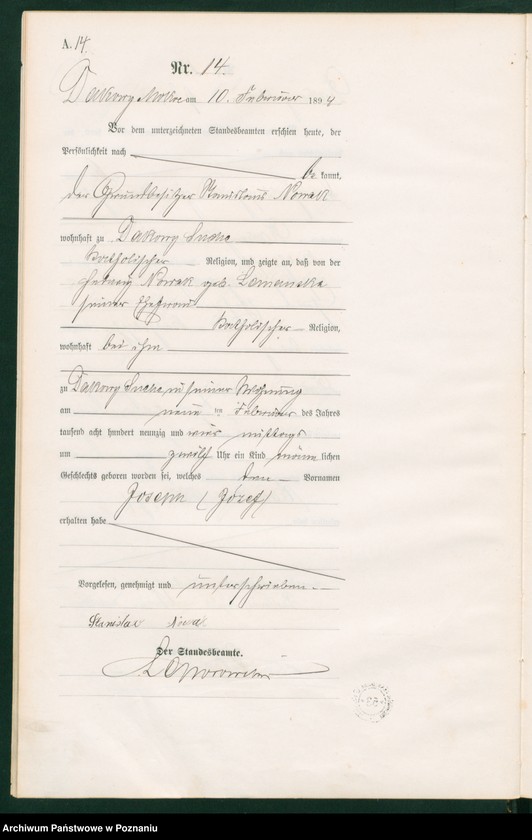 A. 14.
Nr. 14.
Dakowy Mokre am 10. Februar 1894
Vor dem unterzeichneten Standesbeamten erschien heute, der
Persönlichkeit nach
be kannt,
der Grundbesitzer Stanislaus Nowak
wohnhaft zu Dakowy Suche
katholischer Religion, und zeigte an, daß von der
Hedwig Nowak geb. Lemanska
seiner Ehefrau
katholischer Religion,
wohnhaft bei ihm
zu Dakowy Suche, in seiner Wohnung
am neunten Februar des Jahres
tausend acht hundert neunzig und vier mittags
um zwölf Uhr ein Kind männlichen
Geschlechts geboren worden sei, welches den Vornamen
Joseph (Józef)
erhalten habe
Vorgelesen, genehmigt und unterschrieben.
Stanislaw
Der Standesbeamte.
Archiwum Państwowe w Poznaniu